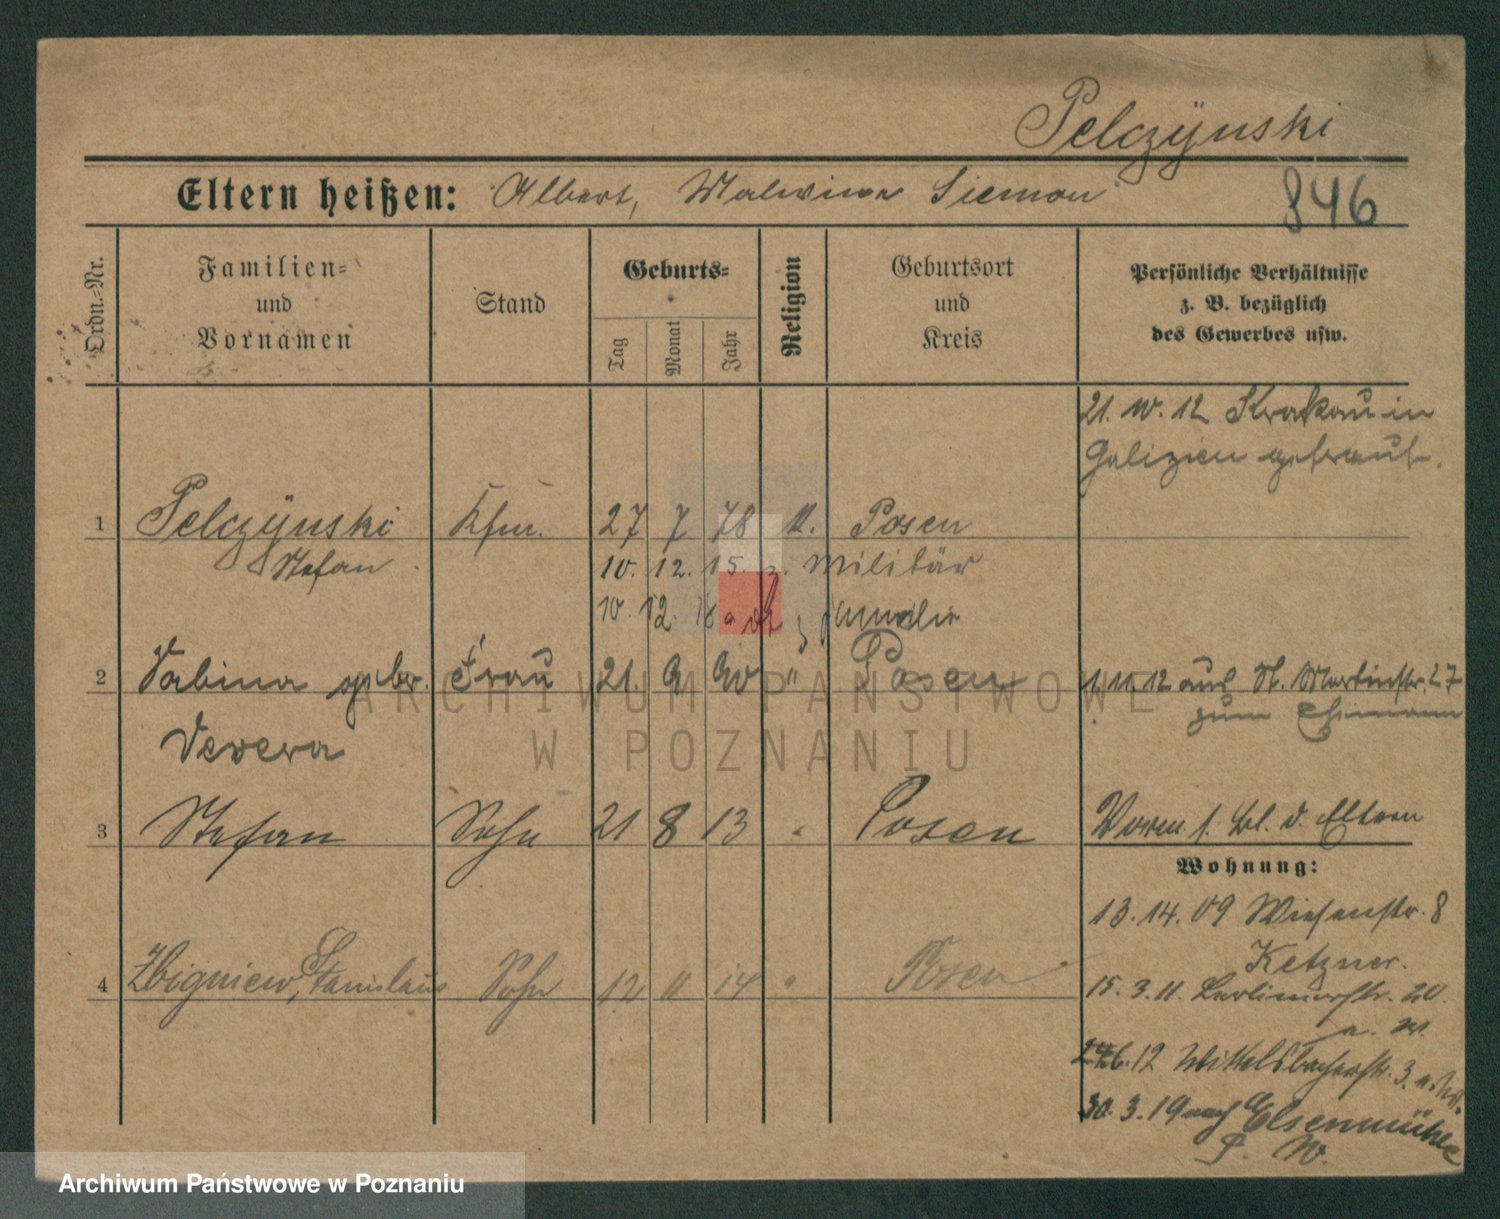 Pelczÿnski
Eltern heißen: Albert, Malwine Siemon
846
Ordn.-Nr.
Familien-
und
Vornamen
Stand
Geburts-
Tag
Monat
Jahr
Religion
Geburtsort
und
Kreis
Persönliche Verhältnisse
z. B. bezüglich
des Gewerbes usw.
21. 10. 12 Krakau in
Galizien getraut.
1 Pelczÿnski Kfm. 27 7 78 k. Posen
Stefan 10. 12. 15. z. Militär
10. 12. 18 z Familie
2 Sabina gebr. Frau 21. 9 90 " Posen 1. 11. 12 aus St. Martinstr. 27
zum Ehemann
Severa
3 Stefan Sohn 21 8 13 " Posen Vorm. s. Bl. d. Eltern
Wohnung:
13. 14. 09 Wiesenstr. 8
Ketzner.
4 Zbigniew, Stanislaus Sohn 12 11 14 " Posen 15. 3. 11. Berlinerstr. 20
a. W.
24.6.12 Wittelsbacherstr. 3.
30. 3. 19 nach Elsenmühle
P. W.
ARCHIWUM PAŃSTWOWE
W POZNANIU
Archiwum Państwowe w Poznaniu